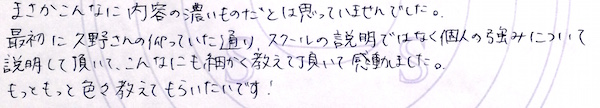 まさかこんなに内容の濃いものだとは思っていませんでした。
最初に久野さんの仰っていた通り、スクールの説明ではなく個人の強みについて
説明して頂いて、こんなにも細かく教えて頂いて感動しました。
もっともっと色々教えてもらいたいです!